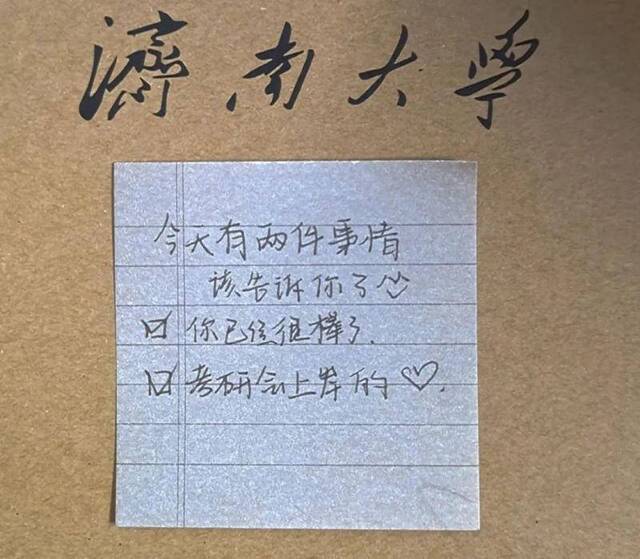 濟南大學
今天有两件事情
该告诉你了
☑ 你已经很棒了.
☑ 考研会上岸的♡.